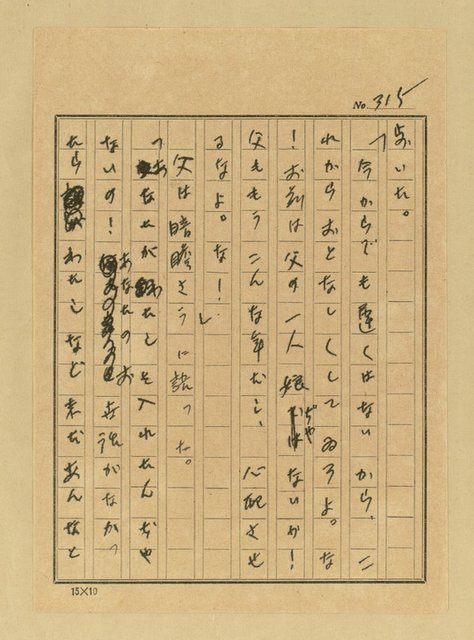 No. 315
歩いた。
「今からでも遅くはないから、こ
れからおとなしくしてゐろよ。な
！お前は父の一人娘ぢやないが！
父ももうこんな年だし、心配させ
るなよ。な！」
父は暗鬱さうに語つた。
「あなたがわたしを入れたんぢや
ないの！あなたのお世話がなかつ
たらわたしなど まだあんなと
15×10